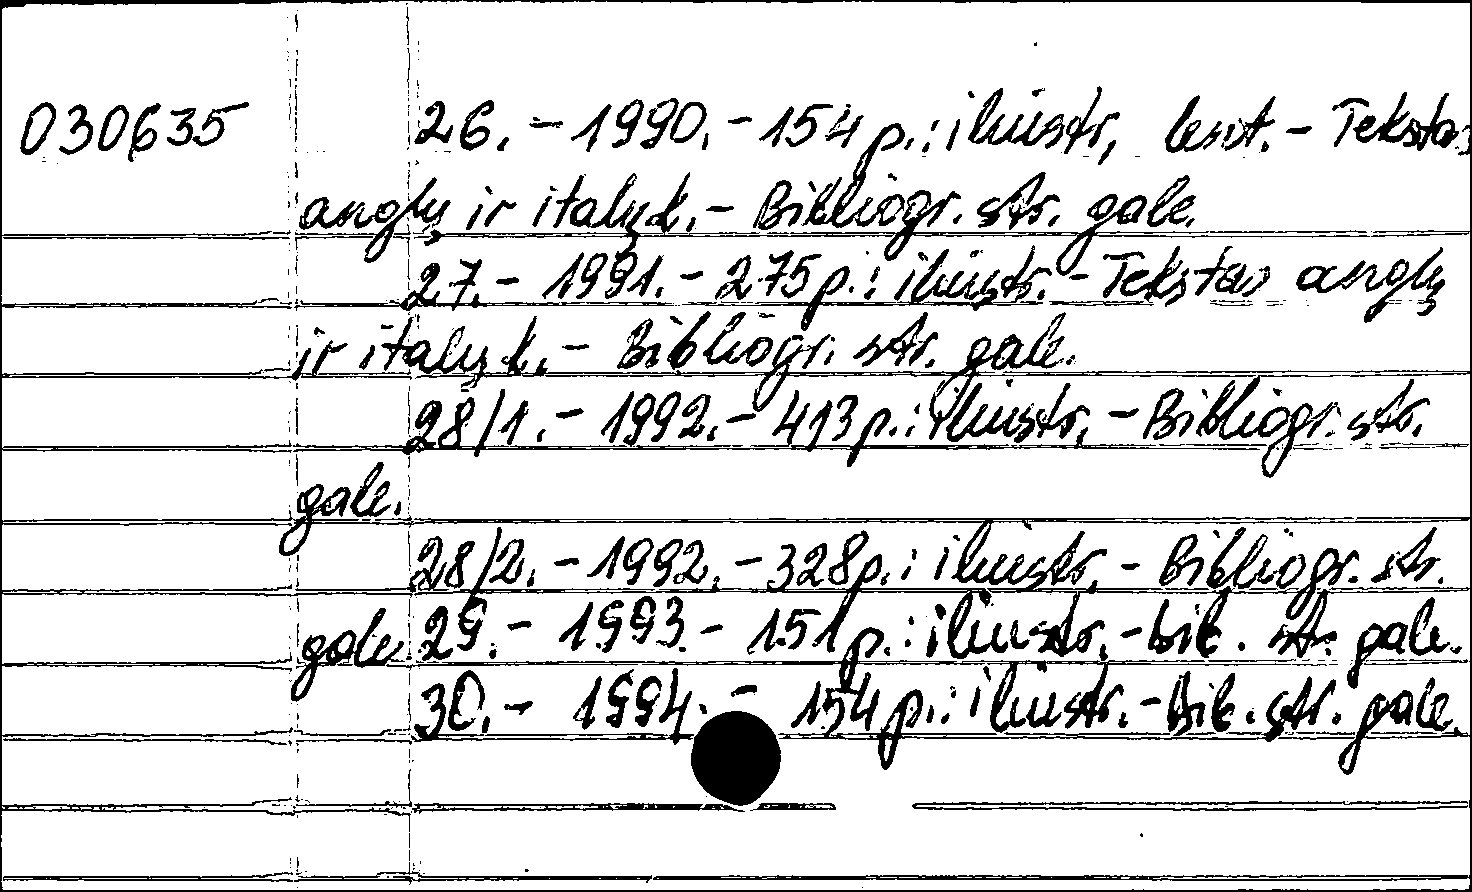 030635 26. - 1990. - 154 p.: iliustr., lent. - Tekstas
anglų ir italų k. - Bibliogr. str. gale.
27. - 1991. - 275 p.: iliustr. - Tekstas anglų
ir italų k. - Bibliogr. str. gale.
28/1. - 1992. - 413 p.: iliustr. - Bibliogr. str.
gale.
28/2. - 1992. - 328 p.: iliustr. - Bibliogr. str.
gale. 29. - 1993. - 151 p.: iliustr. - bib. str. gale.
30. - 1994. - 154 p.: iliustr. - Bib. str. gale.